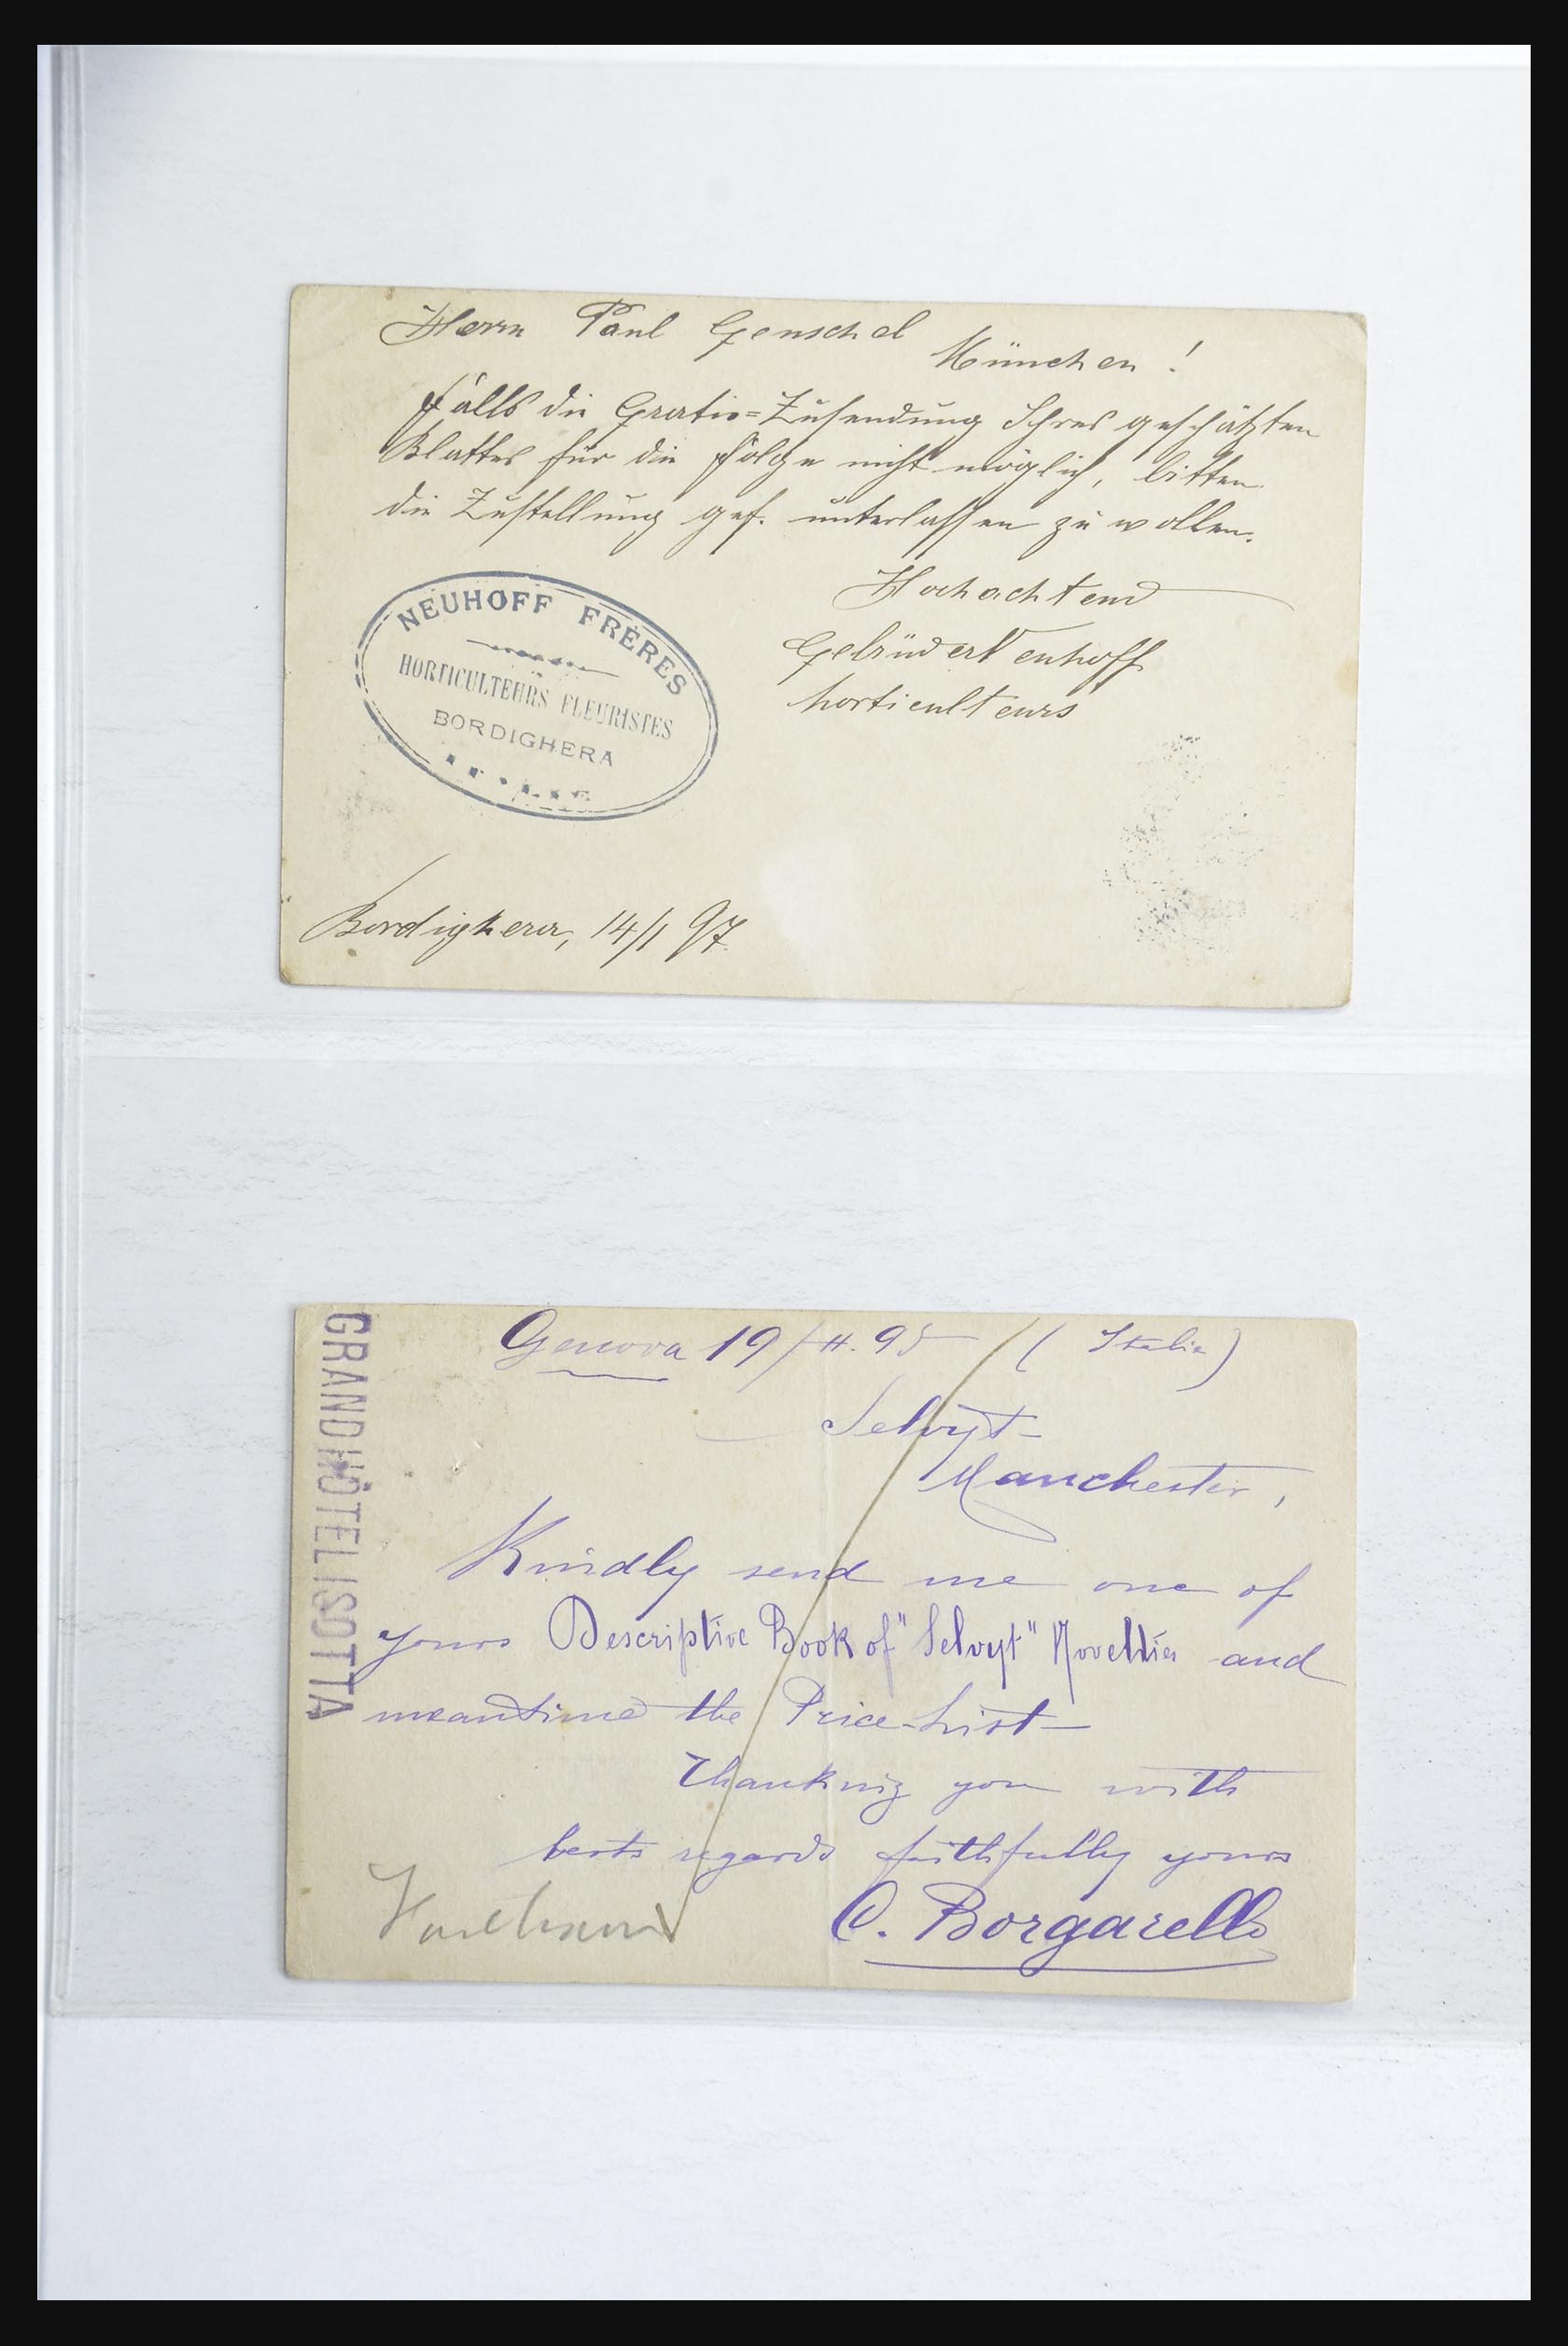 Herrn Paul Genschel
München !
Falls die Gratis=Zusendung Ihres geschätzten
Blattes für die Folge nicht möglich, bitten
die Zustellung gef. unterlassen zu wollen.
Hochachtend
Gebrüder Neuhoff
horticulteurs
NEUHOFF FRÈRES
HORTICULTEURS FLEURISTES
BORDIGHERA
Bordighera, 14/1 97.
GRAND HÔTEL ISOTTA
Genova 19/ (Italia)
Selvyt
Manchester,
Kindly send me one of
yours Descriptive Book of "Selvyt" Novelties and
meantime the Price-List
Thanking you with
bests regards faithfully yours
C. Borgarello